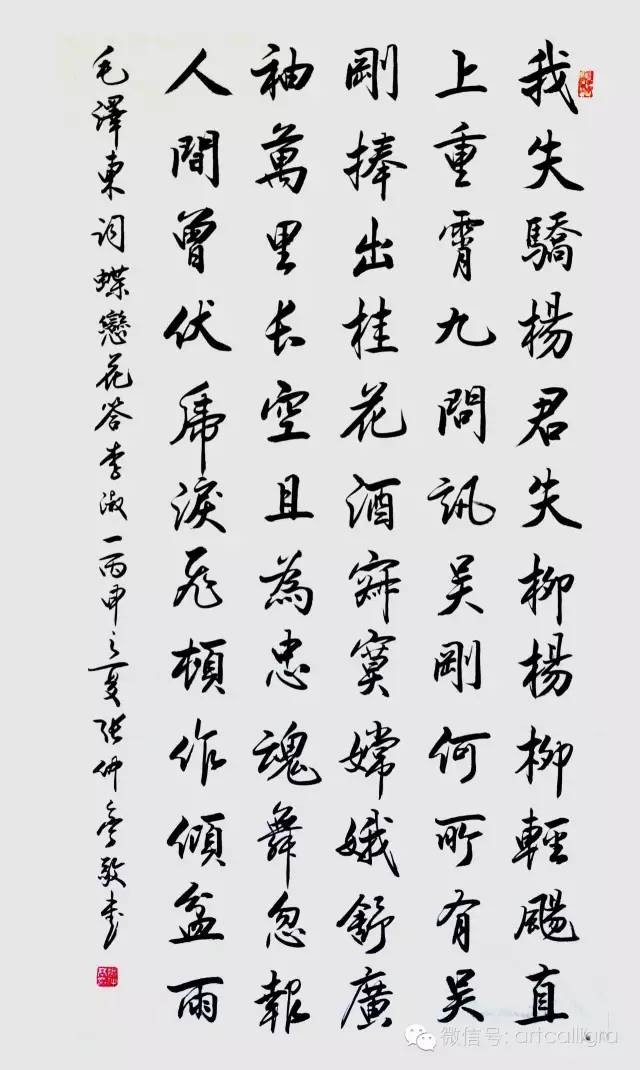 我失驕楊君失柳楊柳輕颺直
上重霄九問訊吳剛何所有吳
剛捧出桂花酒寂寞嫦娥舒廣
袖萬里长空且為忠魂舞忽報
人間曾伏虎淚飛頓作傾盆雨
毛澤東詞蝶戀花答李淑一丙申之夏張仲亭敬書
微信号: artcalligra